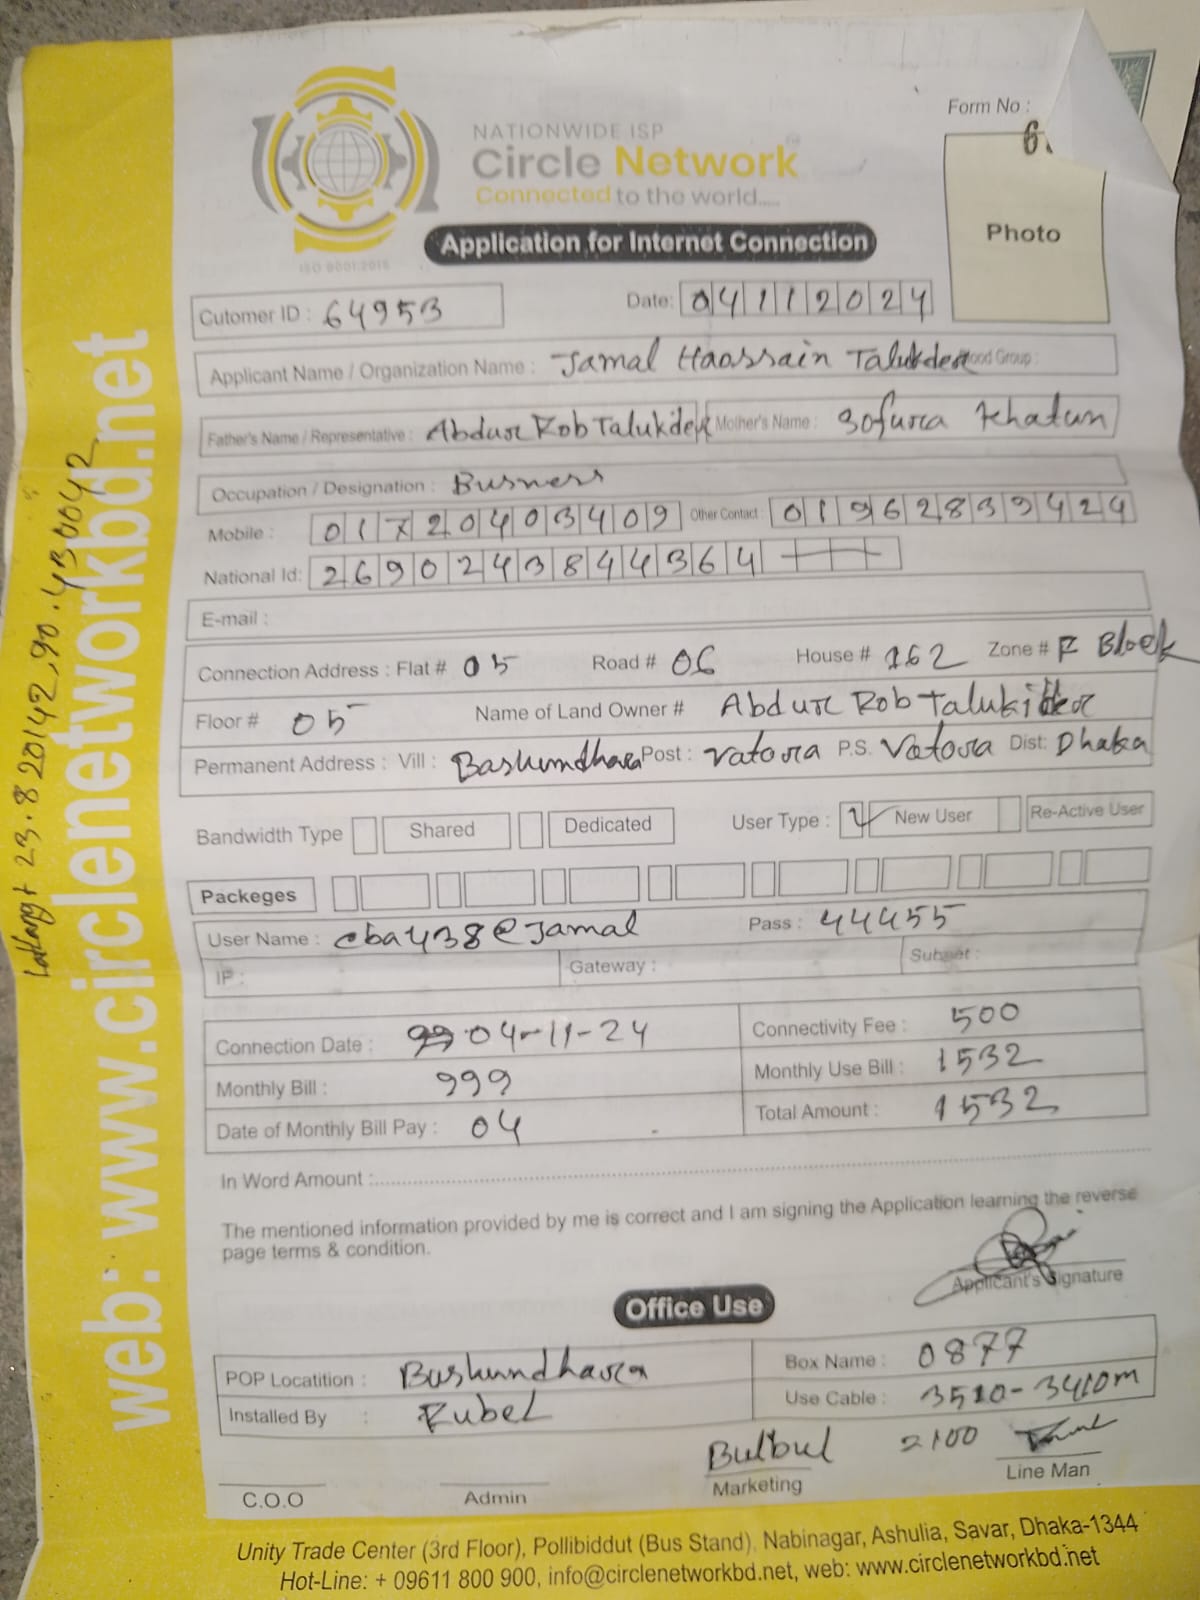 Form No :
6
NATIONWIDE ISP
Circle Network
Connected to the world.....
ISO 9001:2015
Photo
Application for Internet Connection
Cutomer ID : 64953
Date: 04112024
Applicant Name / Organization Name : Jamal Haossain Talukder Blood Group :
Father's Name / Representative : Abdur Rob Talukder Mother's Name : Sofura Khatun
Occupation / Designation : Busness
Mobile : 01720403409 Other Contact : 01962839424
National Id: 2690243844364
E-mail :
Connection Address : Flat # 05 Road # 06 House # 162 Zone # F Block
Floor # 05 Name of Land Owner # Abdur Rob Talukder
Permanent Address : Vill : Bashundhara Post : Vatora P.S. Vatora Dist: Dhaka
Bandwidth Type Shared Dedicated User Type : New User Re-Active User
Packeges
User Name : cba438@Jamal Pass : 44455
IP : Gateway : Subnet :
Connection Date : 04-11-24 Connectivity Fee : 500
Monthly Bill : 999 Monthly Use Bill : 1532
Date of Monthly Bill Pay : 04 Total Amount : 1532
In Word Amount :
The mentioned information provided by me is correct and I am signing the Application learning the reverse
page terms & condition.
Applicant's Signature
Office Use
POP Locatition : Bashundhara Box Name : 0877
Installed By : Rubel Use Cable : 3510-3410m
Bulbul 2100
C.O.O Admin Marketing Line Man
Unity Trade Center (3rd Floor), Pollibiddut (Bus Stand), Nabinagar, Ashulia, Savar, Dhaka-1344
Hot-Line: + 09611 800 900, info@circlenetworkbd.net, web: www.circlenetworkbd.net
web: www.circlenetworkbd.net
23.820142,90.430042